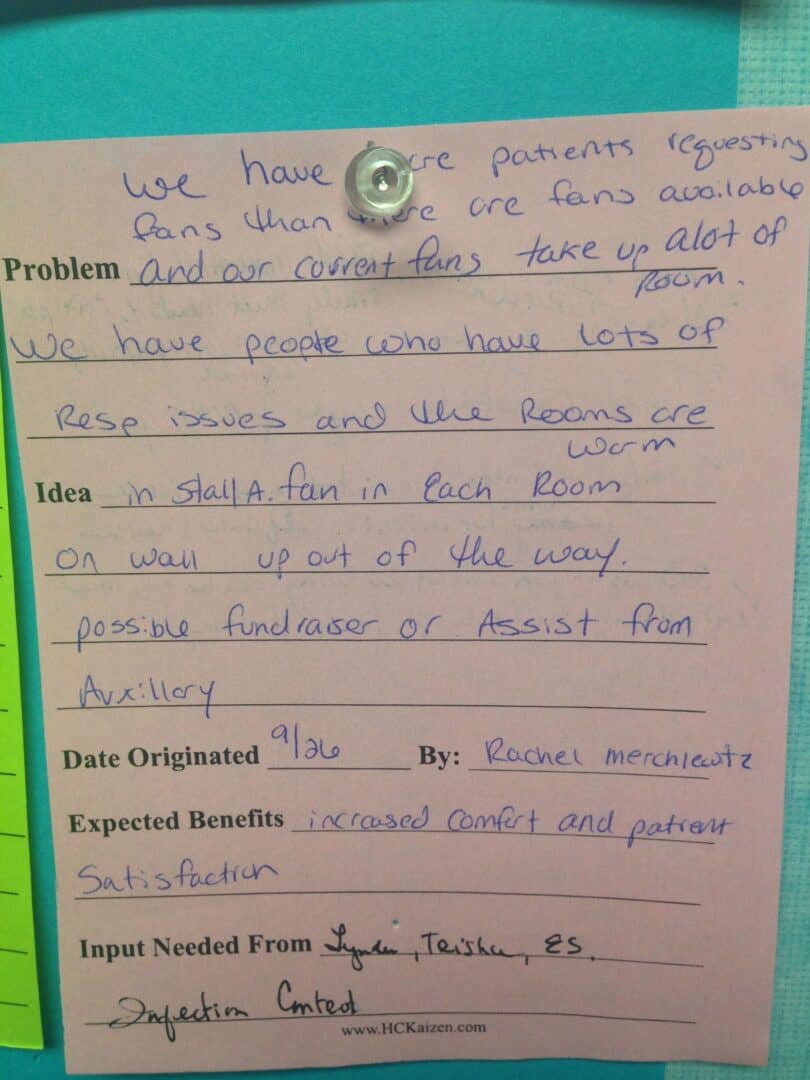 we have patients requesting
fans than there are fans available
Problem and our current fans take up alot of
Room.
We have people who have lots of
Resp issues and the Rooms are
warm
Idea in stall A. fan in Each Room
on wall up out of the way.
possible fundraiser or Assist from
Auxillary
Date Originated 9/26 By: Rachel merchlewitz
Expected Benefits increased comfort and patient
Satisfaction
Input Needed From Teisha, ES,
Infection Control
www.HCKaizen.com